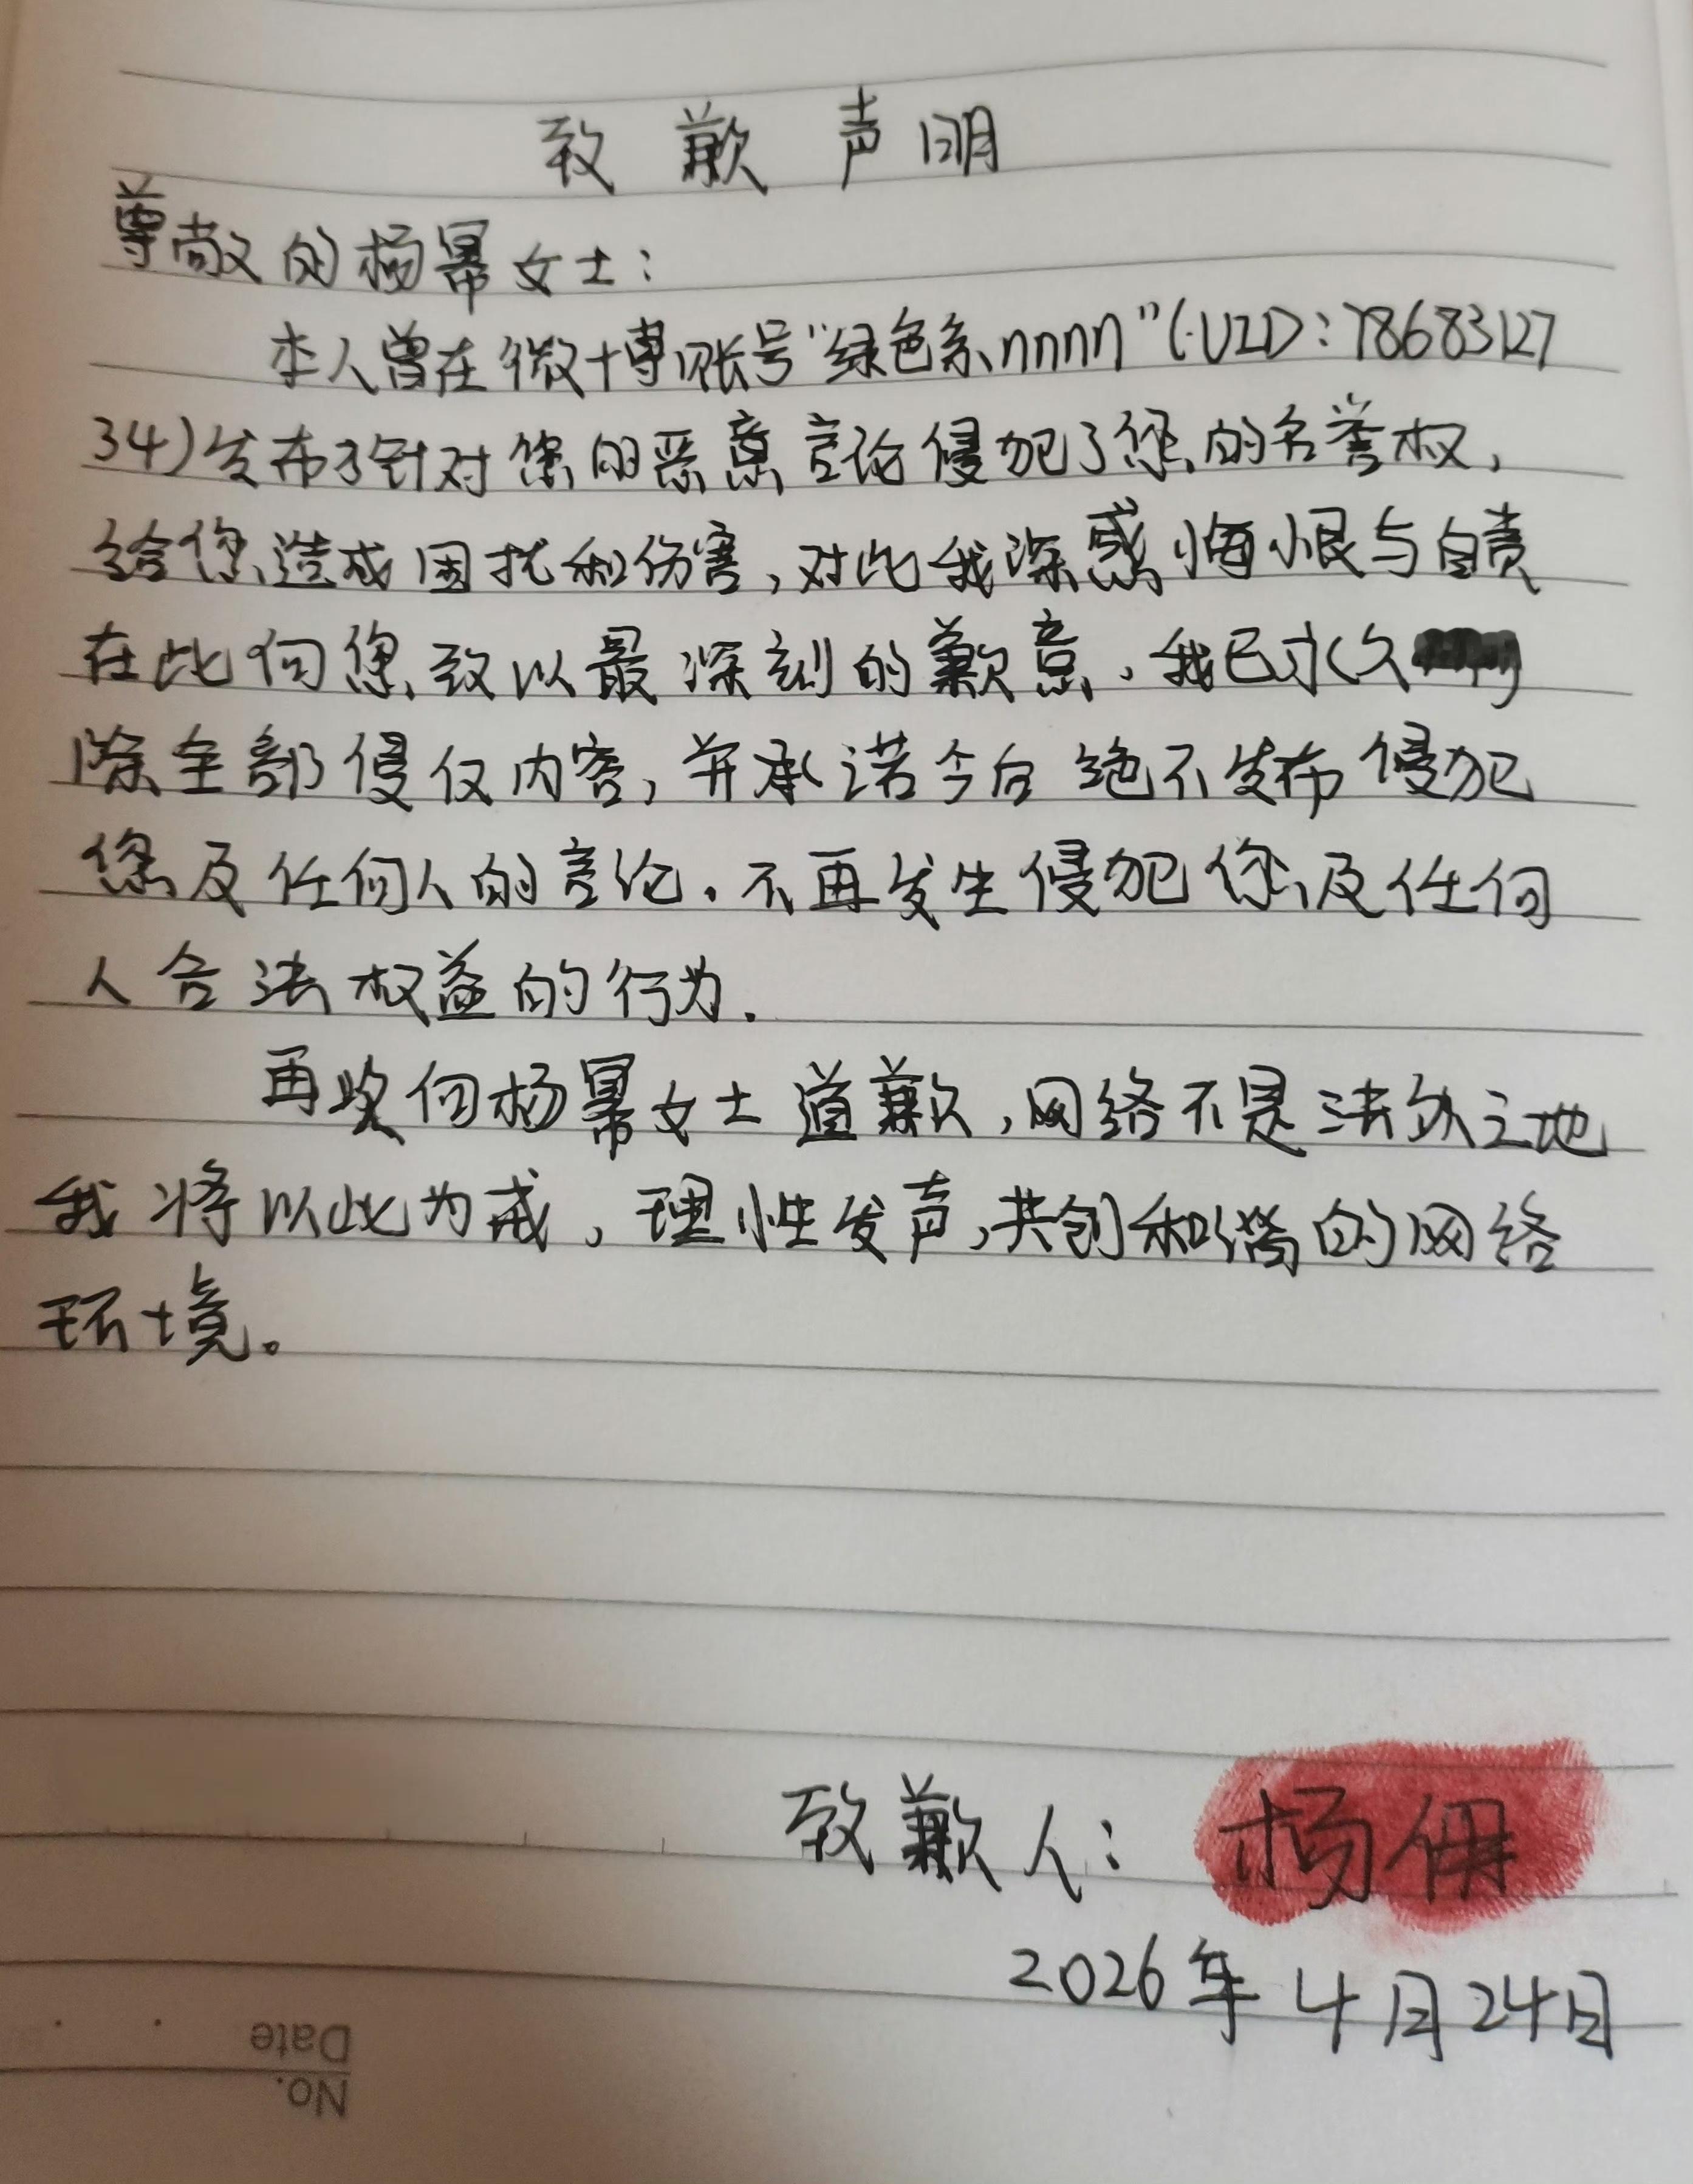 致歉声明
尊敬的杨幂女士：
本人曾在微博账号“绿色系nnnn”(UID:78683127
34)发布了针对您的恶意言论侵犯了您的名誉权，
给您造成困扰和伤害，对此我深感悔恨与自责
在此向您致以最深刻的歉意，我已永久
除全部侵权内容，并承诺今后绝不发布侵犯
您及任何人的言论.不再发生侵犯您及任何
人合法权益的行为.
再次向杨幂女士道歉，网络不是法外之地
我将以此为戒，理性发声，共创和谐的网络
环境。
致歉人：杨佣
2026年4月24日
Date
No.